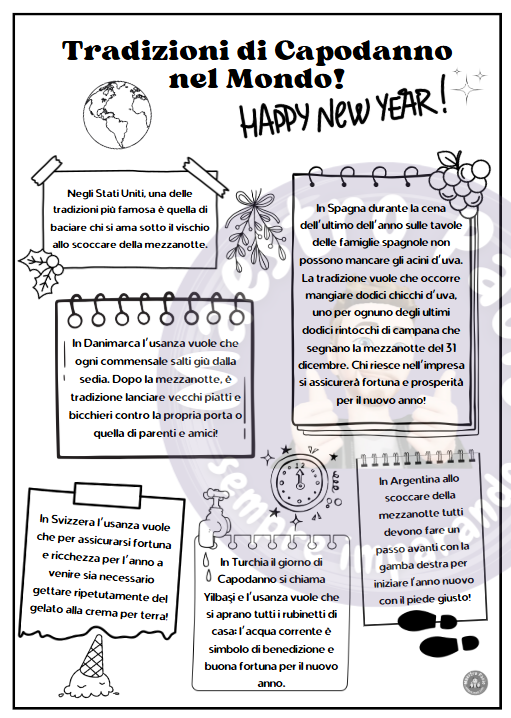 Tradizioni di Capodanno
nel Mondo!
HAPPY NEW YEAR!
Negli Stati Uniti, una delle
tradizioni più famosa è quella di
baciare chi si ama sotto il vischio
allo scoccare della mezzanotte.
In Spagna durante la cena
dell'ultimo dell'anno sulle tavole
delle famiglie spagnole non
possono mancare gli acini d'uva.
La tradizione vuole che occorre
mangiare dodici chicchi d'uva,
uno per ognuno degli ultimi
dodici rintocchi di campana che
segnano la mezzanotte del 31
dicembre. Chi riesce nell'impresa
si assicurerà fortuna e prosperità
per il nuovo anno!
In Danimarca l'usanza vuole che
ogni commensale salti giù dalla
sedia. Dopo la mezzanotte, è
tradizione lanciare vecchi piatti e
bicchieri contro la propria porta o
quella di parenti e amici!
12
In Argentina allo
scoccare della
mezzanotte tutti
devono fare un
passo avanti con la
gamba destra per
iniziare l'anno nuovo
con il piede giusto!
In Svizzera l'usanza vuole
che per assicurarsi fortuna
e ricchezza per l'anno a
venire sia necessario
gettare ripetutamente del
gelato alla crema per terra!
In Turchia il giorno di
Capodanno si chiama
Yilbaşi e l'usanza vuole che
si aprano tutti i rubinetti di
casa: l'acqua corrente è
simbolo di benedizione e
buona fortuna per il nuovo
anno.